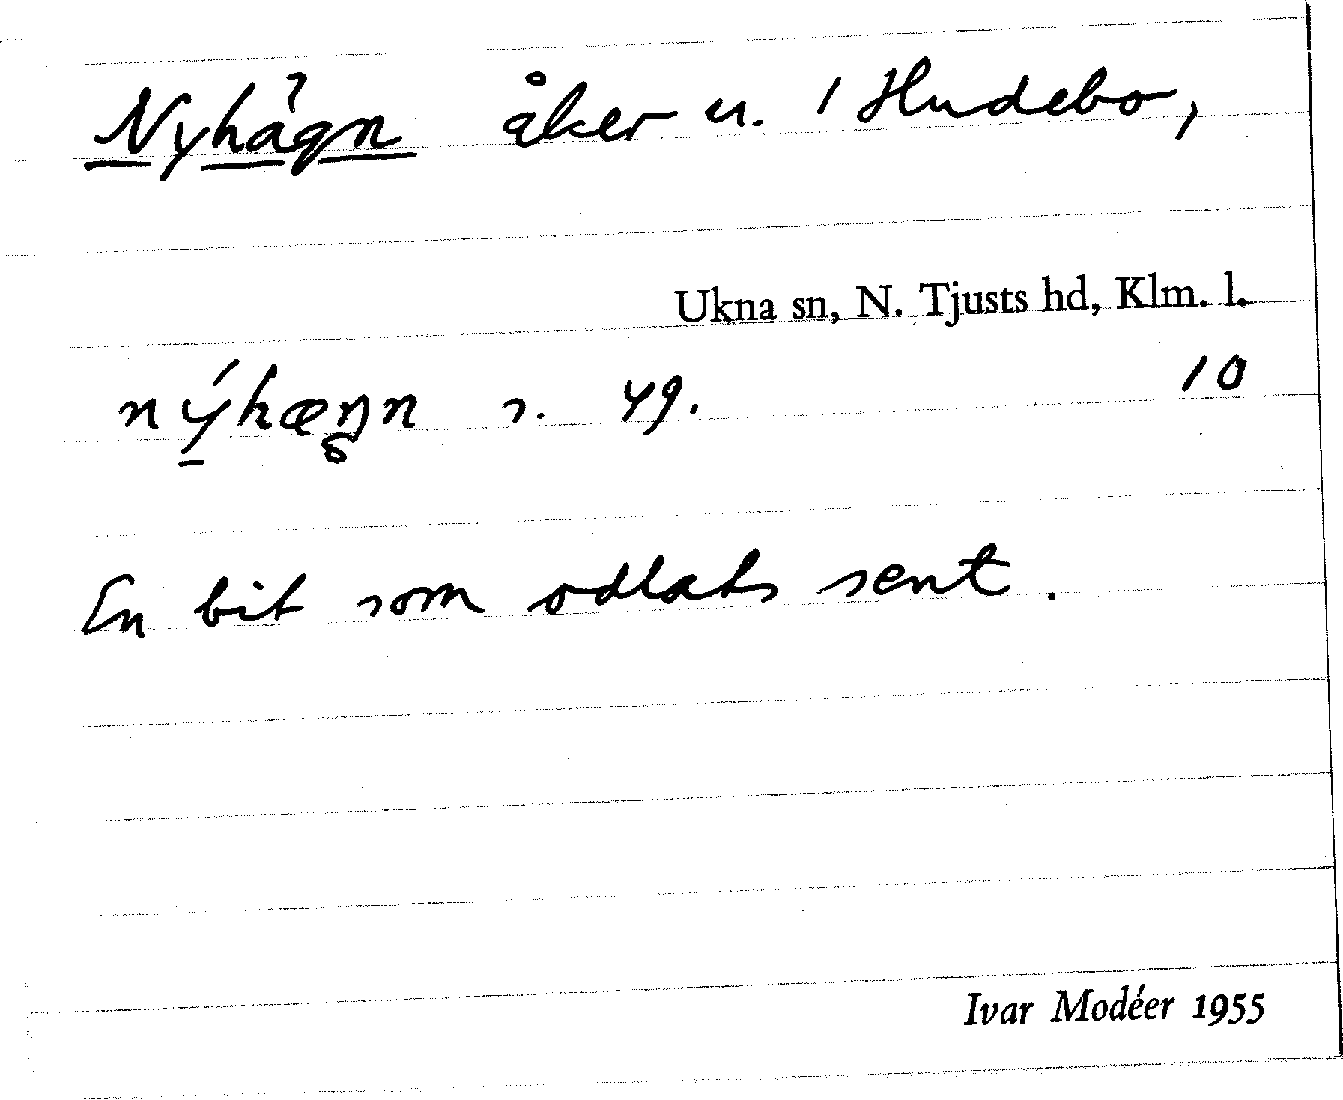 Nyhagn åker u. 1 Hudebo,
Ukna sn, N. Tjusts hd, Klm. l.
10
s. yg.
En bit som odlats sent.
Ivar Modéer 1955